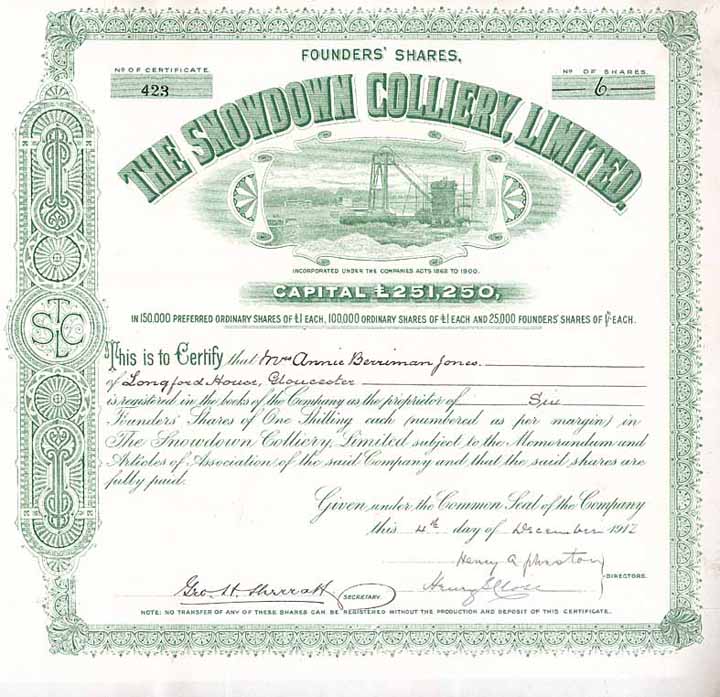 FOUNDERS' SHARES,
Nº OF CERTIFICATE.
423
Nº OF SHARES.
6.
THE SNOWDOWN COLLIERY, LIMITED.
INCORPORATED UNDER THE COMPANIES ACTS 1862 TO 1900.
CAPITAL £251,250,
IN 150,000 PREFERRED ORDINARY SHARES OF £1 EACH, 100,000 ORDINARY SHARES OF £1 EACH AND 25,000 FOUNDERS' SHARES OF 1/- EACH.
T
S C
L
This is to Certify that Mrs Annie Berriman Jones.
of Longford House, Gloucester
is registered in the books of the Company as the proprietor of Six
Founders' Shares of One Shilling each (numbered as per margin) in
The Snowdown Colliery, Limited subject to the Memorandum and
Articles of Association of the said Company and that the said shares are
fully paid.
Given under the Common Seal of the Company
this 4th day of December 1912
Henry
DIRECTORS.
Geo. H.
SECRETARY.
Henry
NOTE: NO TRANSFER OF ANY OF THESE SHARES CAN BE REGISTERED WITHOUT THE PRODUCTION AND DEPOSIT OF THIS CERTIFICATE.